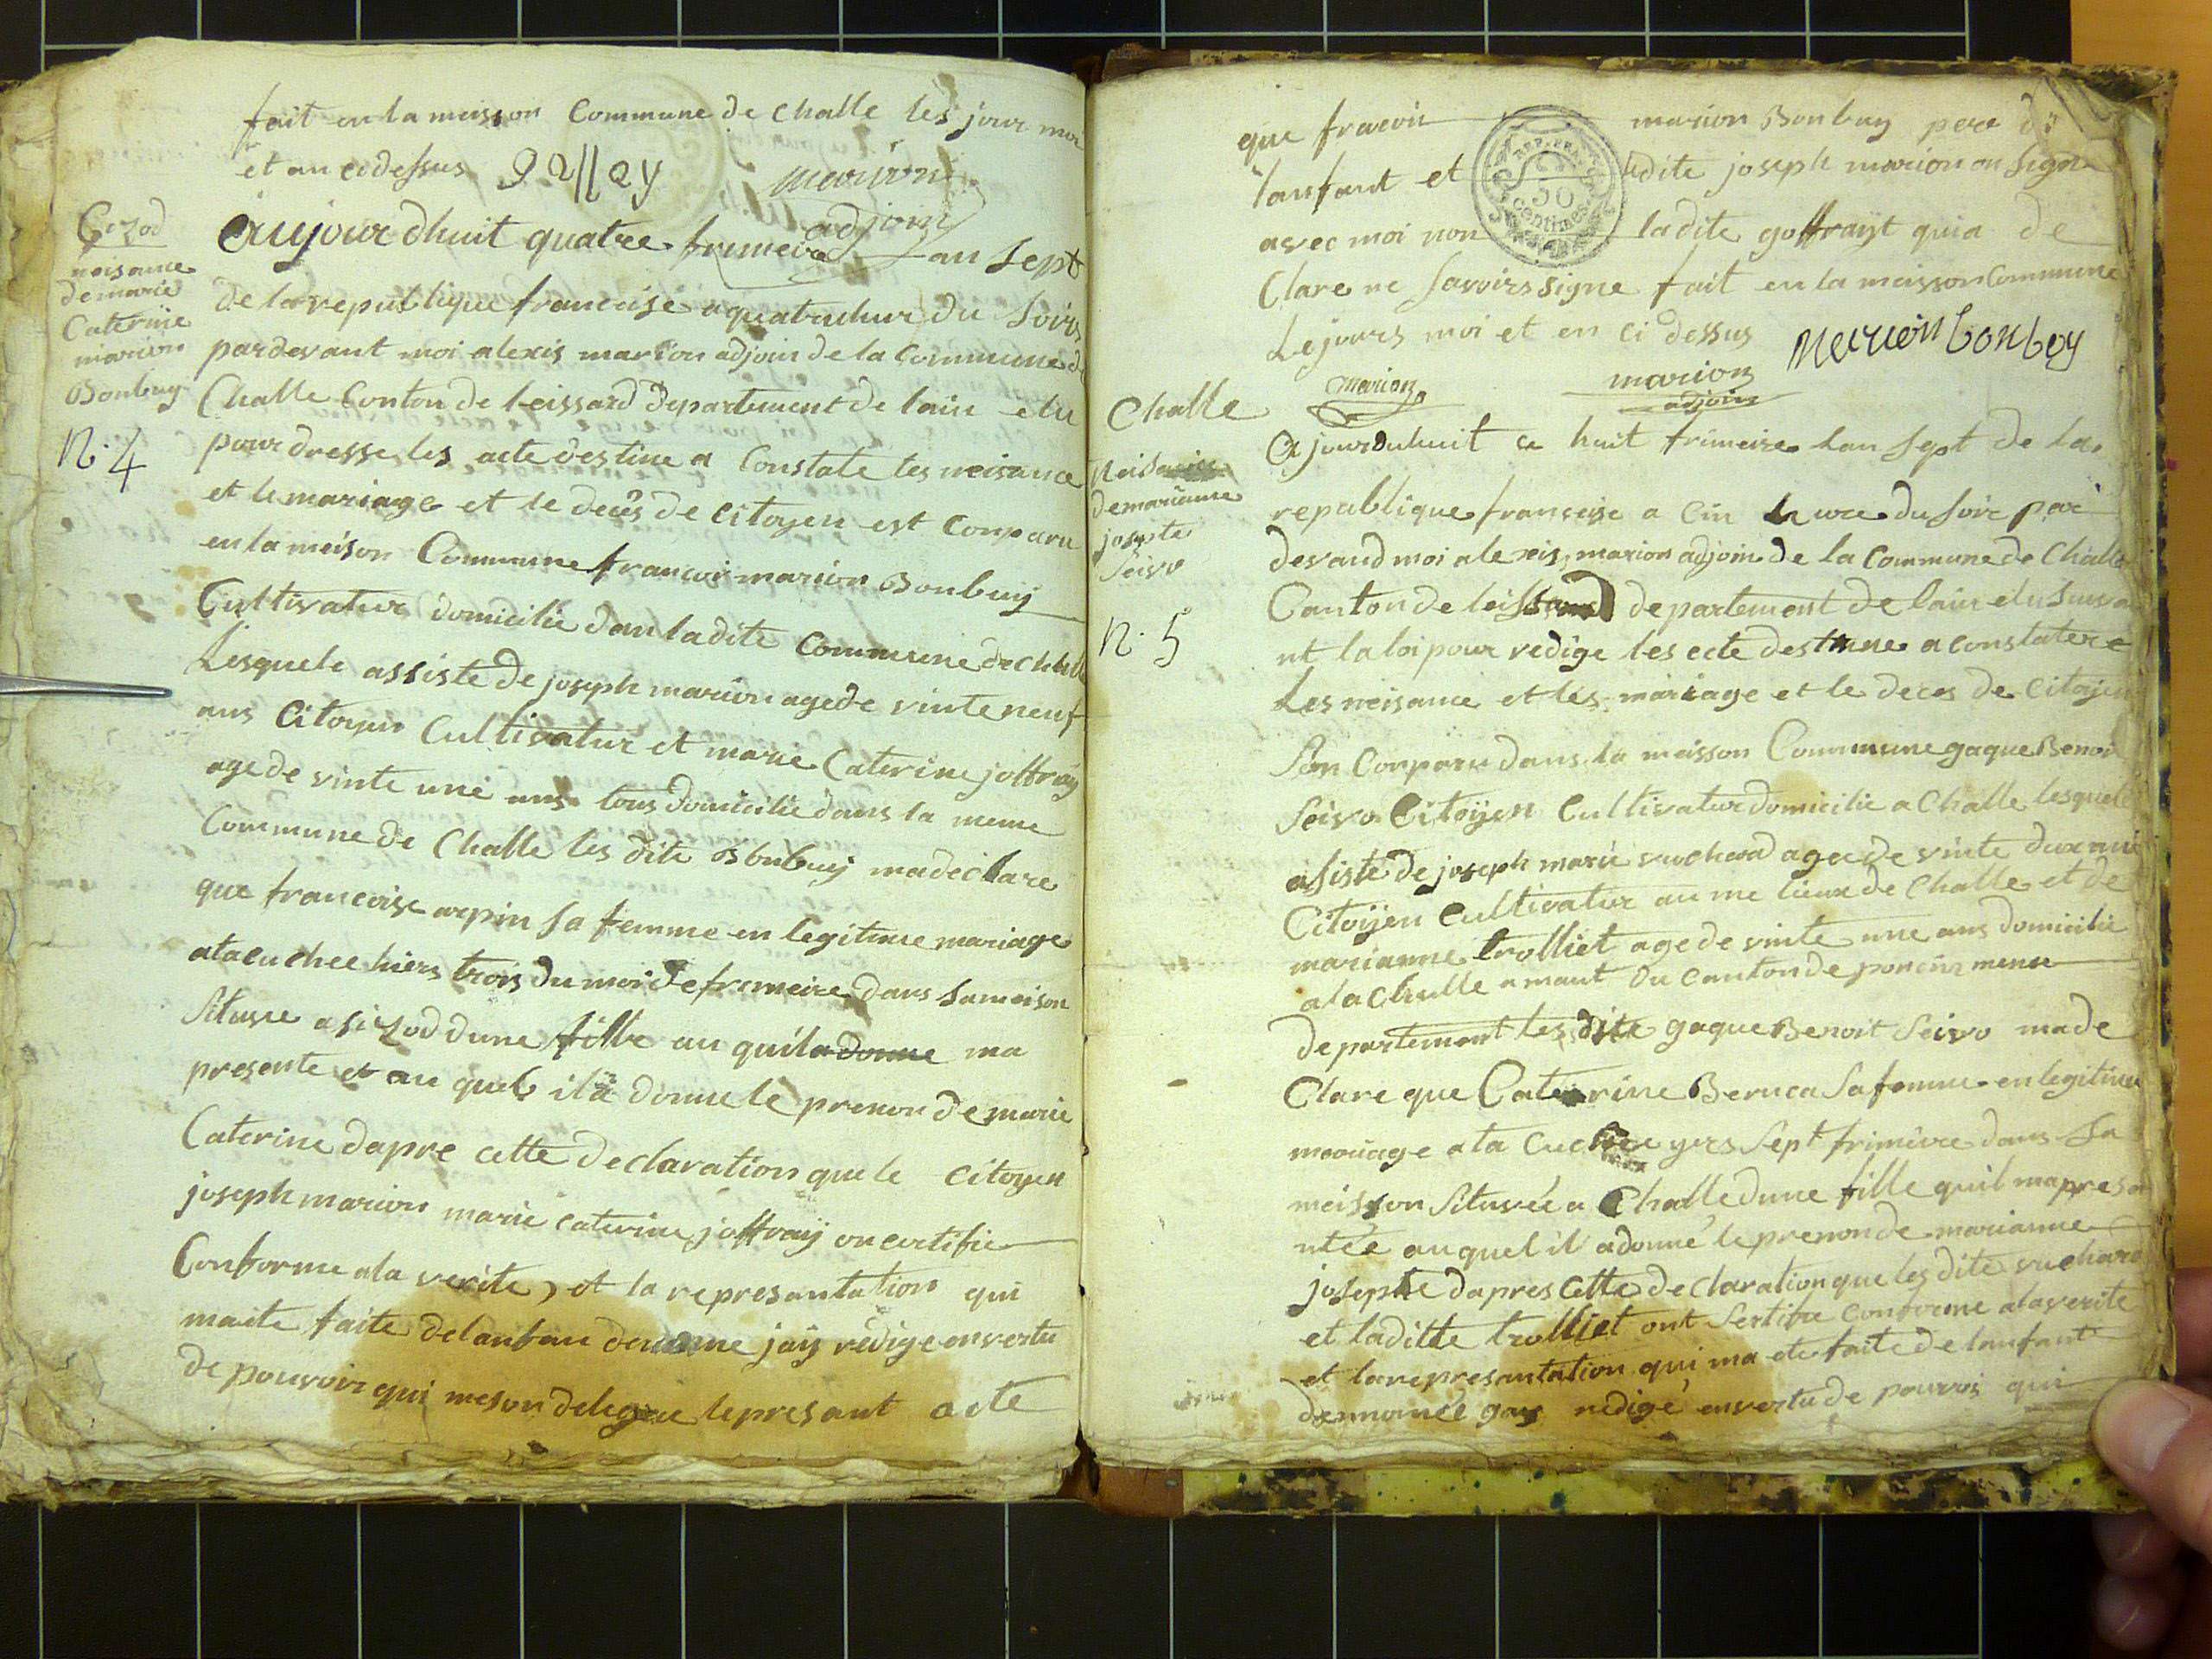 fait en la meisson Commune de Challe les jour moi
et an ci dessus gallay marion
adjoin
Cizod
neisance
de marie
Caterine
marion
Bonbuy
N. 4
aujourdhuit quatre frimeire lan Sept
de la republique francaise a quatreheur du Soirs
pardevant moi alexis marion adjoin de la Commune de
Challe Conton de leissard departement de lain elu
pour dresse les acte destine a Constate les neisance
et le mariage et le deces de Citoyen est Conparu
en la meison Commune francois marion Bonbuy
Cultivatur domicilie dan ladite Commune de Challe
Lesquele assiste de joseph marion agede vinte neuf
ans Citoyen Cultivatur et marie Caterine joffray
age de vinte une ans tous domicilie dans la meme
Commune de Challe les dite Bonbuy madeclare
que francoise arpin sa femme en legitime mariage
ataccuchee hiers trois du moi de fremeire dans sameison
Situee a sizod dune fille au quila donne ma
presente et au quel il a donne le prenon de marie
Caterine dapre cette declaration que le Citoyen
joseph marion marie caterine joffray on certifie
Conforme a la verite, et la represantation qui
maite faite delanfan denome jay redige envertu
de pouvoir qui meson delegue lepresant acte
que francois marion Bonbuy pere de
lanfant et ledite joseph marion on signe
avec moi non ladite goffrayt quia de
Clare ne Savoirs signe fait en la meisson Commune
Le jours moi et en ci dessus Marion bonboy
marion marion
adjoin
Challe
Neisance
de marianne
josepte
Seivo
N. 5
a jourduhuit ce huit frimeire lan Sept de la
republique franceise a Cin heure du soir par
devand moi alexis marion adjoin de la Commune de Challe
Canton de leissard departement de lain elu Suiva
nt la loi pour redige les acte destine a constatere
Les neisance et les mariage et le deces de Citoyen
Son Conparu dans la meisson Commune gaque Benoit
Seivo Citoÿen Cultivatur domicilie a Challe lesquele
asiste de joseph marie vuchard agee de vinte dux ans
Citoÿen Cultivatur au me lieux de Challe et de
marianne trolliet age de vinte une ans domicilie
a la Chulle amaut du Canton de poncin meme
departement les dite gaque Benoit Seivo made
Clare que Caterine Beruca Sa femme en legitime
mariage ata Cuchee yers Sept frimeire dans Sa
meisson Situvée a Challe dune fille quil mapresa
ntée auquel il adonné le prenon de marianne
josepte dapres cette declaration que les dite vuchard
et laditte trolliet ont Sertifie conforme a laverite
et la represantation qui ma ete faite de lanfant
dennomée gay redigé envertu de pouvoi qui